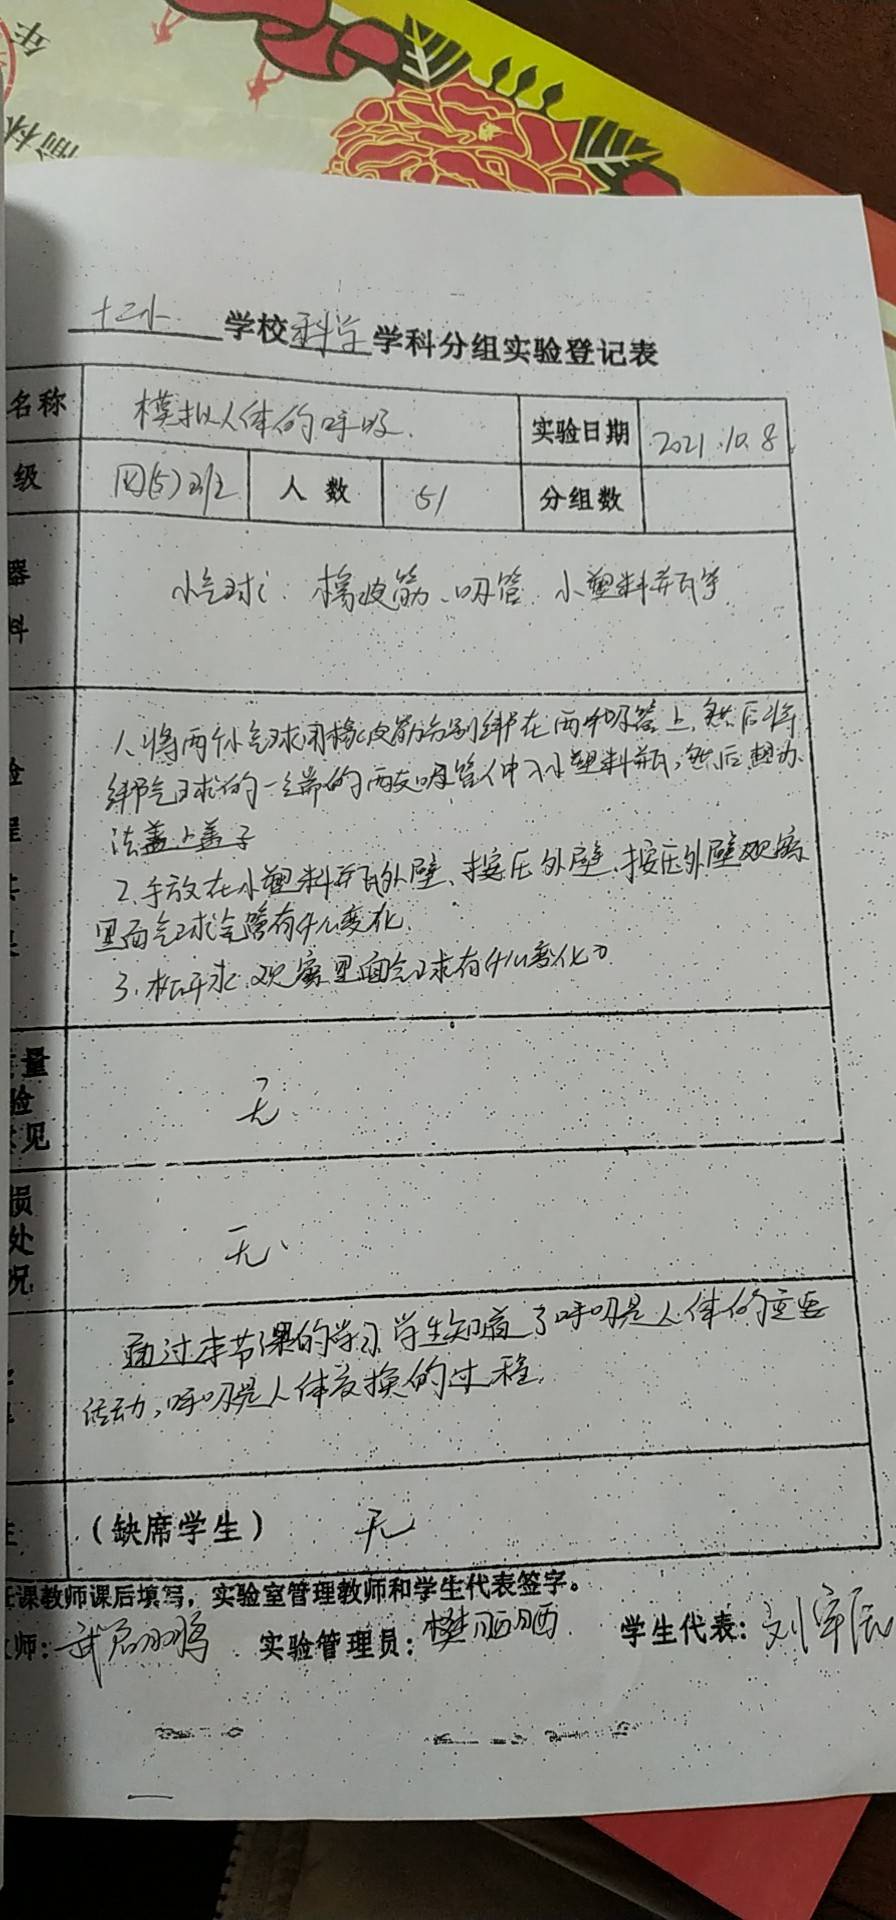 年
榆林
十二小 学校 科学 学科分组实验登记表
名称 模拟人体的呼吸. 实验日期 2021.10.8
级 四(5)班 人数 51 分组数
器
料
小气球、橡皮筋、吸管、小塑料瓶等
1、将两个小气球用橡皮筋分别绑在两根吸管上,然后将
绑气球的一端的两支吸管伸入小塑料瓶,然后想办
法盖上盖子
2、手放在小塑料瓶外壁、按压外壁、按压外壁观察
里面气球 有什么变化.
3、松开 观察里面气球有什么变化?
验
程
量
验
见
无
损
处
况
无、
通过本节课的学习,学生知道了呼吸是人体的重要
活动,呼吸是人体交换的过程.
(缺席学生) 无
任课教师课后填写,实验室管理教师和学生代表签字。
师: 实验管理员: 樊 学生代表: 刘